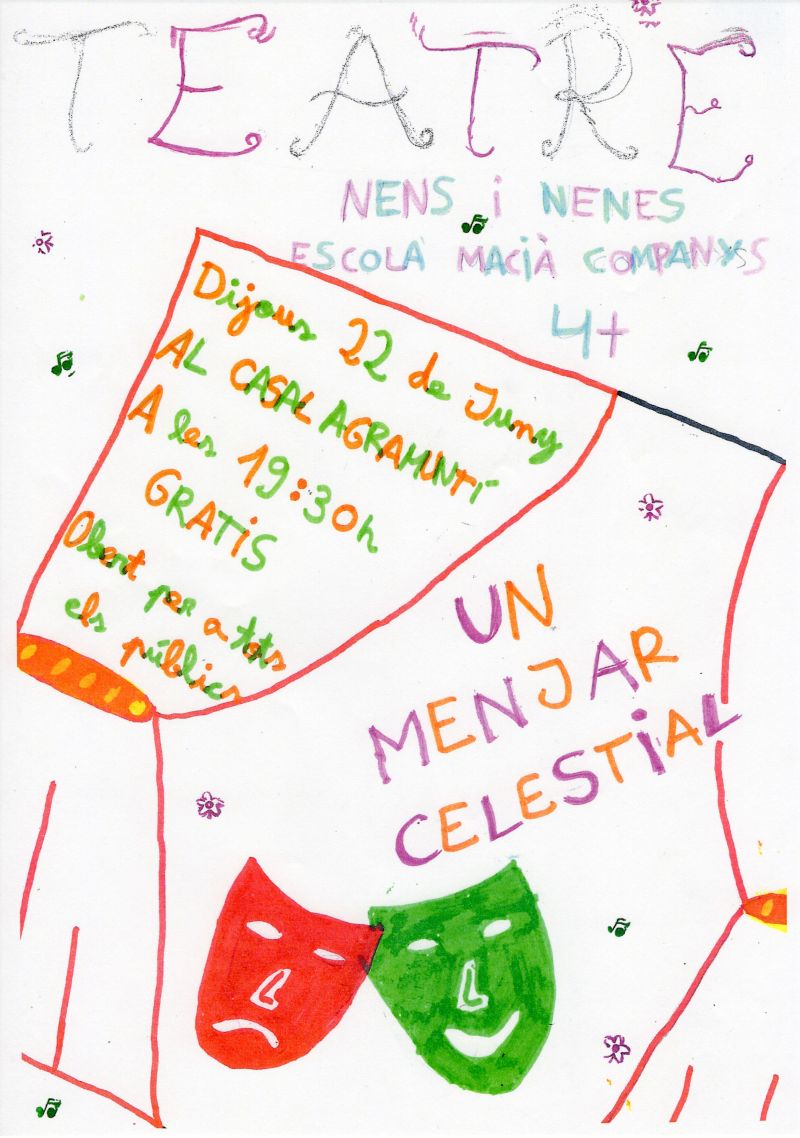 TEATRE
NENS i NENES
ESCOLA MACIÀ COMPANYS
4+
Dijous 22 de Juny
AL CASAL AGRAMUNTÍ
A les 19:30h
GRATiS
Obert per a tots
els públics
UN
MENJAR
CELESTiAL